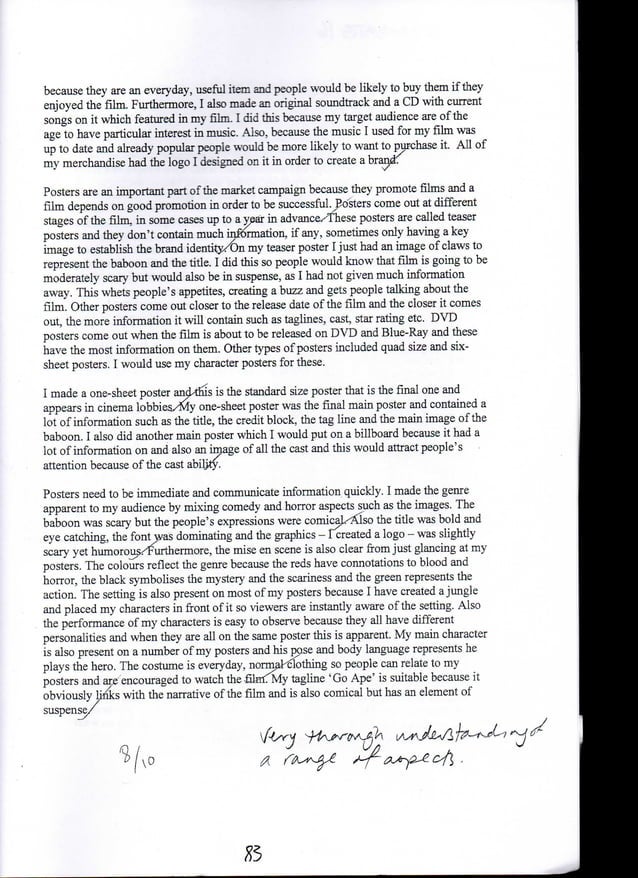 because they are an everyday, useful item and people would be likely to buy them if they
enjoyed the film. Furthermore, I also made an original soundtrack and a CD with current
songs on it which featured in my film. I did this because my target audience are of the
age to have particular interest in music. Also, because the music I used for my film was
up to date and already popular people would be more likely to want to purchase it. All of
my merchandise had the logo I designed on it in order to create a brand.
Posters are an important part of the market campaign because they promote films and a
film depends on good promotion in order to be successful. Posters come out at different
stages of the film, in some cases up to a year in advance. These posters are called teaser
posters and they don't contain much information, if any, sometimes only having a key
image to establish the brand identity. On my teaser poster I just had an image of claws to
represent the baboon and the title. I did this so people would know that film is going to be
moderately scary but would also be in suspense, as I had not given much information
away. This whets people's appetites, creating a buzz and gets people talking about the
film. Other posters come out closer to the release date of the film and the closer it comes
out, the more information it will contain such as taglines, cast, star rating etc. DVD
posters come out when the film is about to be released on DVD and Blue-Ray and these
have the most information on them. Other types of posters included quad size and six-
sheet posters. I would use my character posters for these.
I made a one-sheet poster and this is the standard size poster that is the final one and
appears in cinema lobbies. My one-sheet poster was the final main poster and contained a
lot of information such as the title, the credit block, the tag line and the main image of the
baboon. I also did another main poster which I would put on a billboard because it had a
lot of information on and also an image of all the cast and this would attract people's
attention because of the cast ability.
Posters need to be immediate and communicate information quickly. I made the genre
apparent to my audience by mixing comedy and horror aspects such as the images. The
baboon was scary but the people's expressions were comical. Also the title was bold and
eye catching, the font was dominating and the graphics – I created a logo – was slightly
scary yet humorous. Furthermore, the mise en scene is also clear from just glancing at my
posters. The colours reflect the genre because the reds have connotations to blood and
horror, the black symbolises the mystery and the scariness and the green represents the
action. The setting is also present on most of my posters because I have created a jungle
and placed my characters in front of it so viewers are instantly aware of the setting. Also
the performance of my characters is easy to observe because they all have different
personalities and when they are all on the same poster this is apparent. My main character
is also present on a number of my posters and his pose and body language represents he
plays the hero. The costume is everyday, normal clothing so people can relate to my
posters and are encouraged to watch the film. My tagline 'Go Ape' is suitable because it
obviously links with the narrative of the film and is also comical but has an element of
suspense.
Very thorough understanding of
a range of aspects.
8/10
83